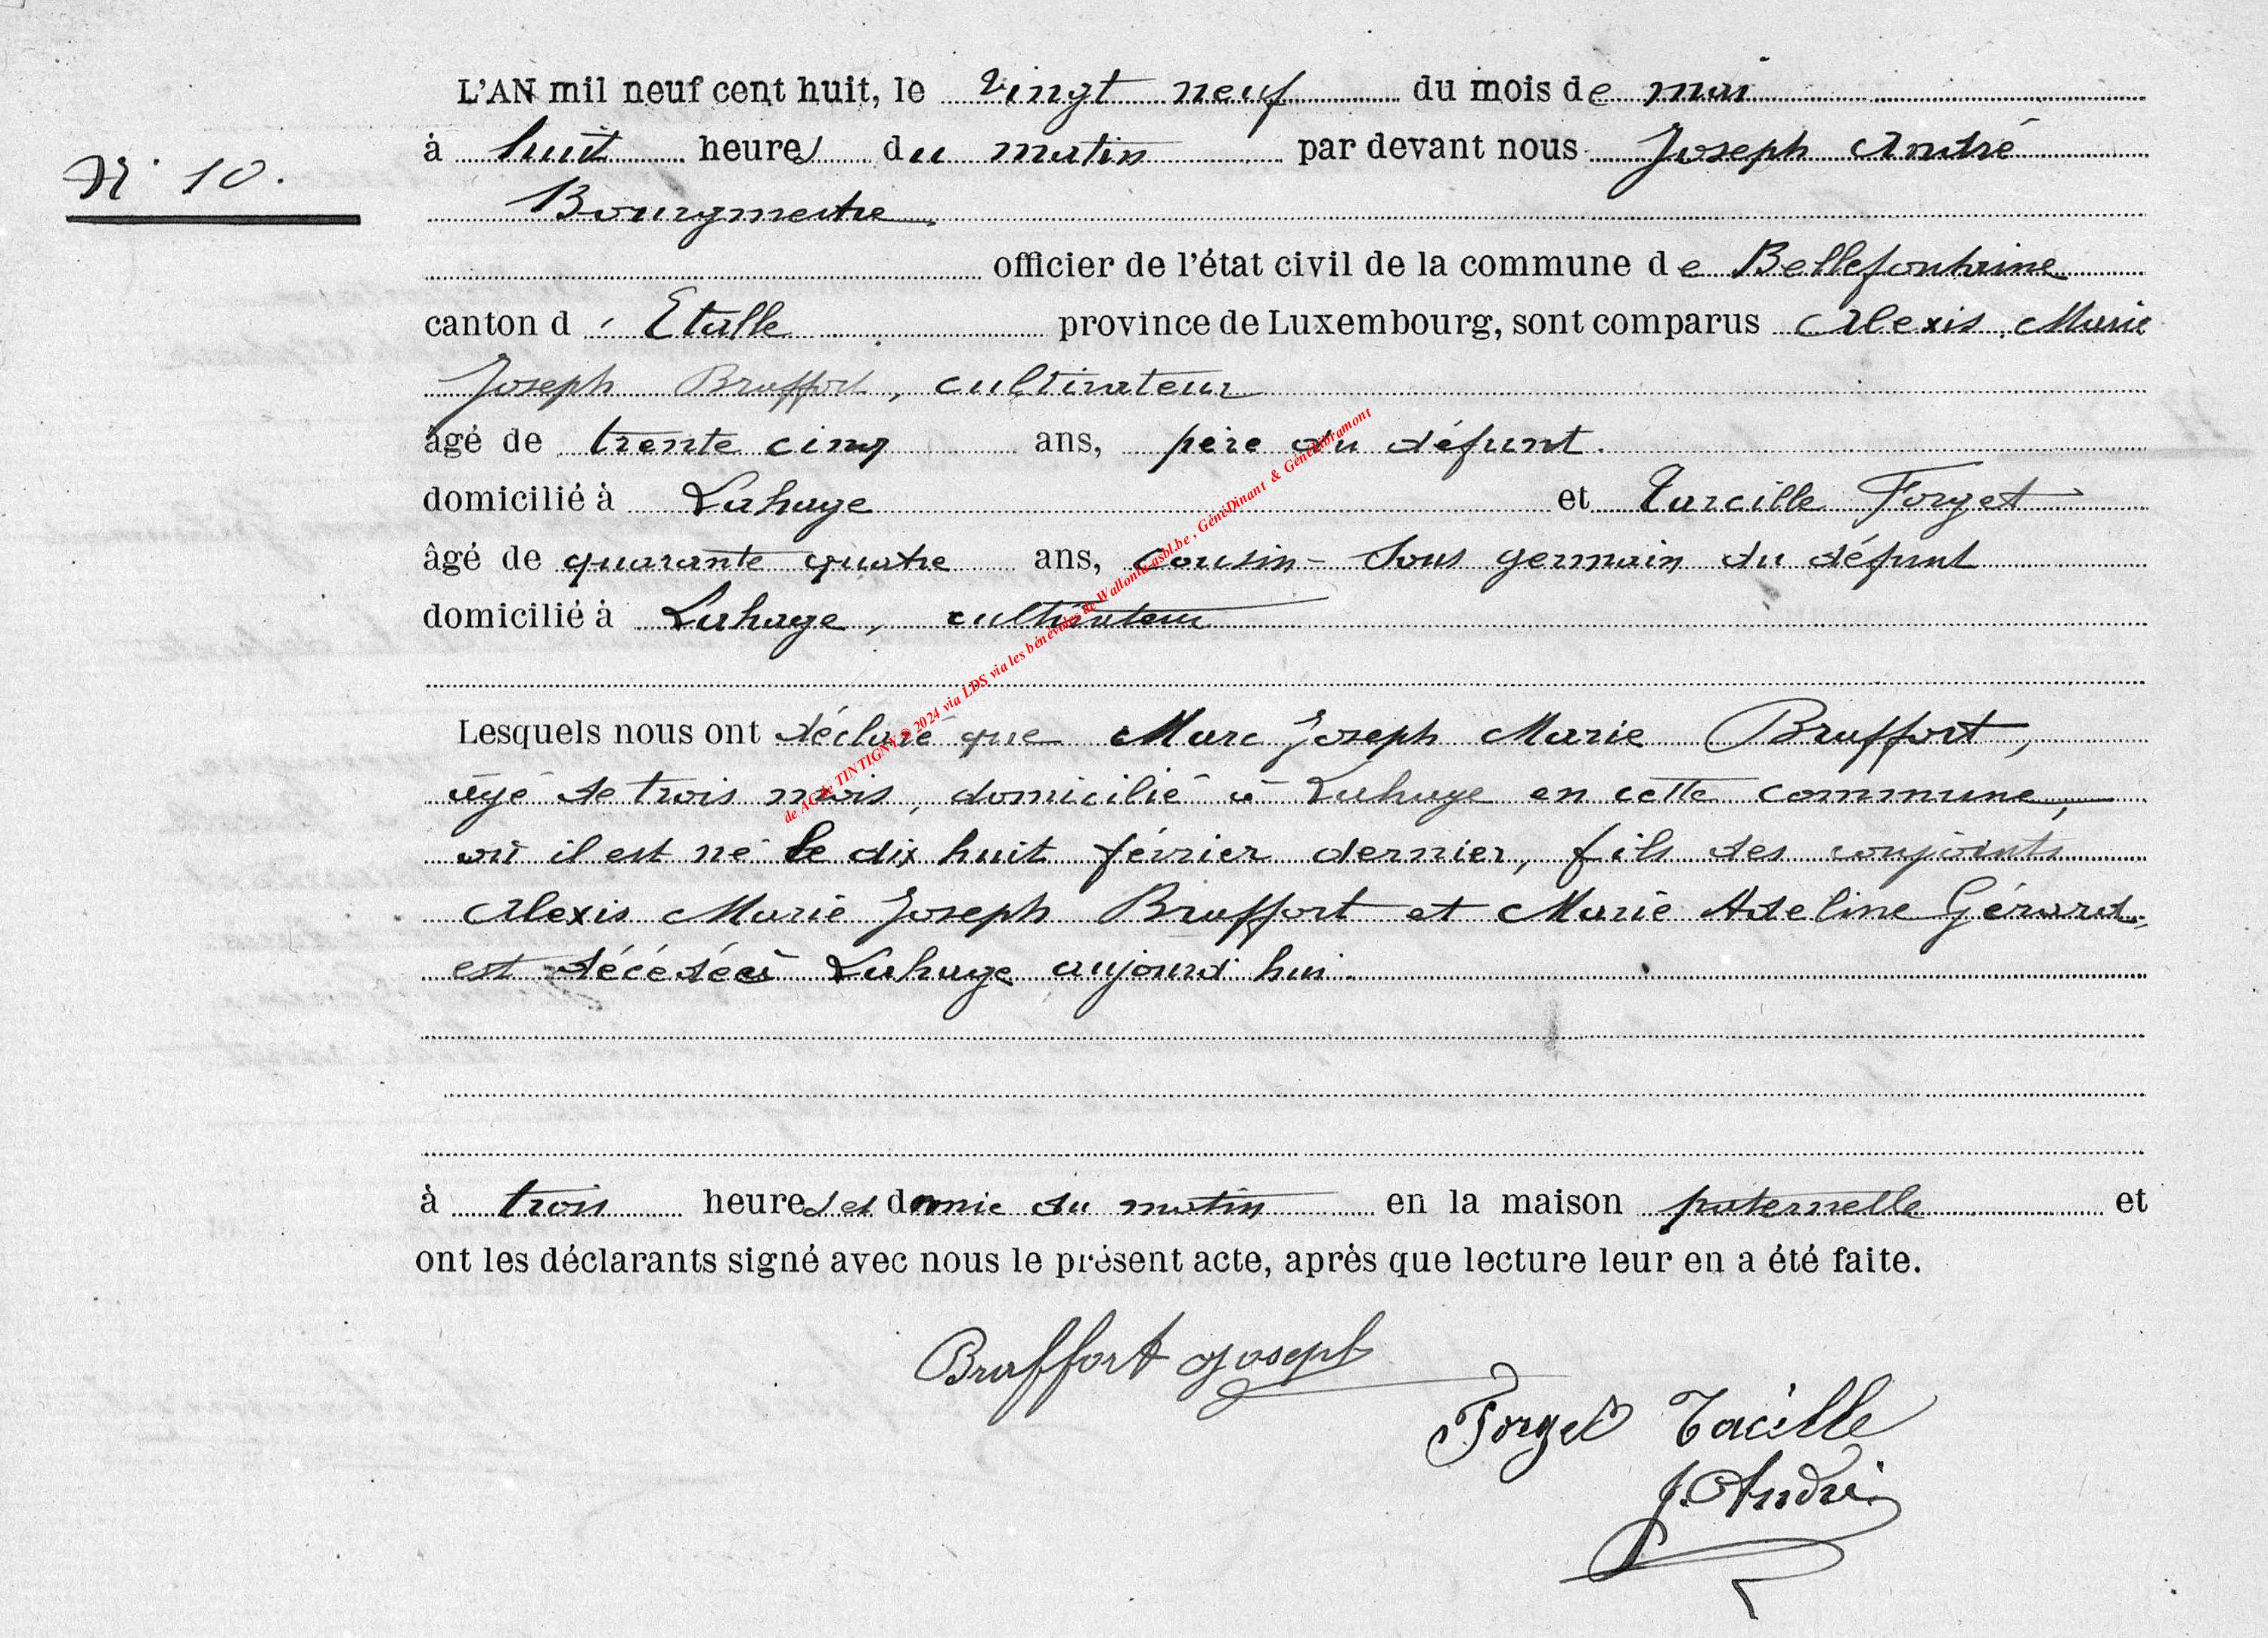 L'AN mil neuf cent huit, le vingt neuf du mois de mai
N° 10.
à huit heures du matin par devant nous Joseph André
Bourgmestre
officier de l'état civil de la commune de Bellefontaine
canton d'Etalle province de Luxembourg, sont comparus Alexis Marie
Joseph Braffort, cultivateur
âgé de trente cinq ans, père du défunt.
domicilié à Lahage et Tarcille Forget
âgé de quarante quatre ans, cousin-sous germain du défunt
domicilié à Lahage, cultivateur
Lesquels nous ont déclaré que Marc Joseph Marie Braffort,
âgé de trois mois, domicilié à Lahage en cette commune,
où il est né le dix huit février dernier, fils des conjoints
Alexis Marie Joseph Braffort et Marie Adeline Gérard,
est décédé à Lahage aujourd'hui.
à trois heures et demie du matin en la maison paternelle et
ont les déclarants signé avec nous le présent acte, après que lecture leur en a été faite.
Braffort Joseph
Forget Tacille
J. André
de AC de TINTIGNY © 2024 via LDS via les bénévoles de Wallonia-asbl.be, GénéDinant & GénéLibramont